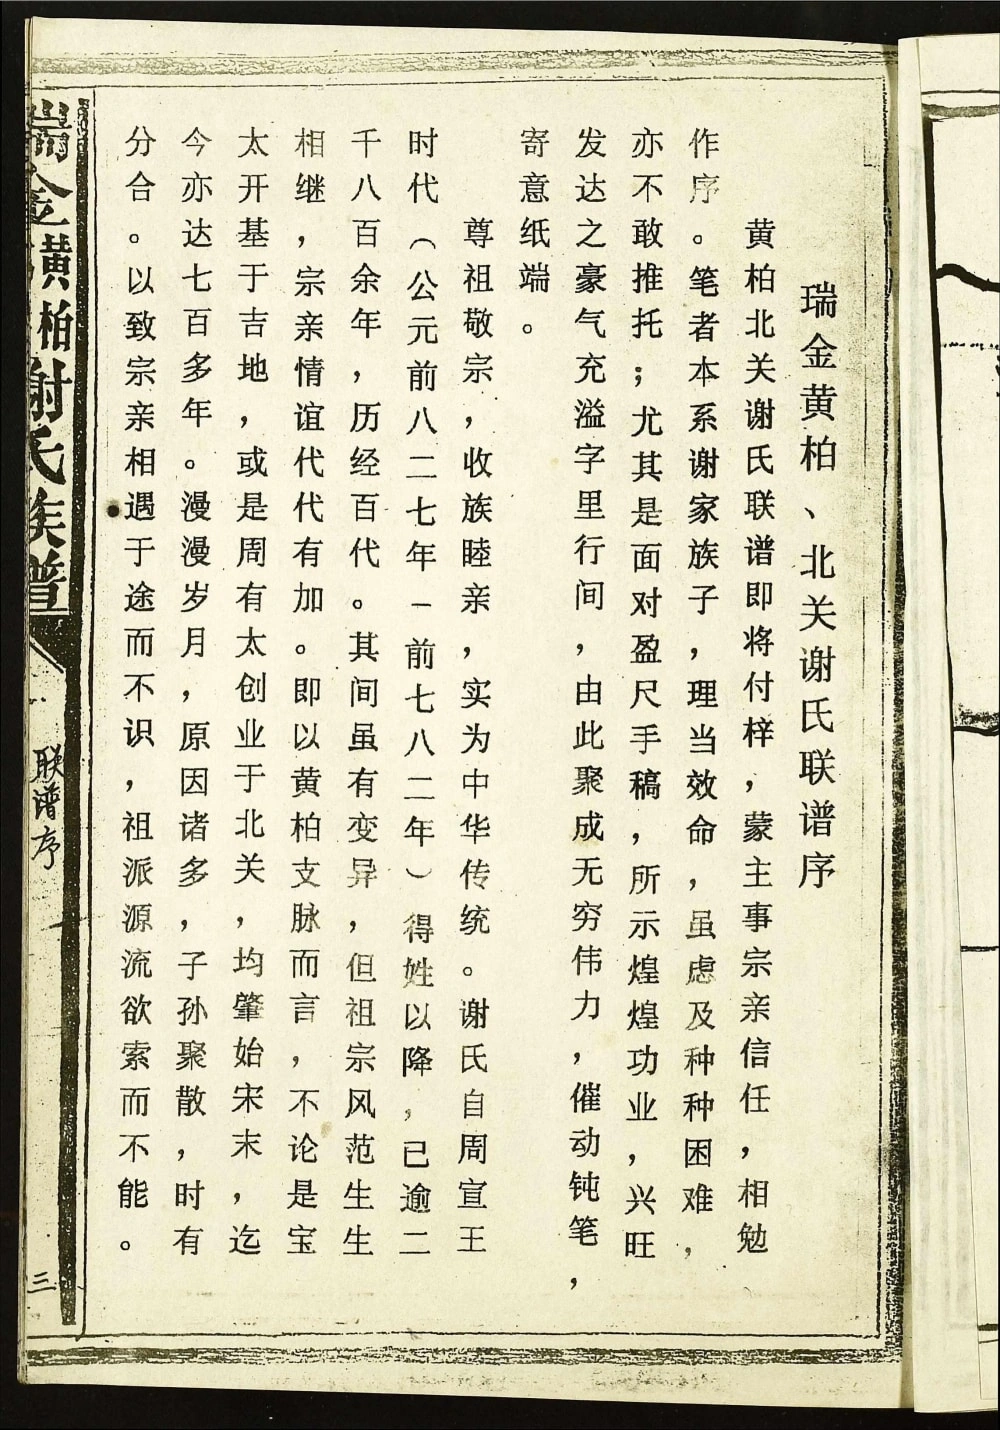 瑞金黄柏、北关谢氏联谱序
黄柏北关谢氏联谱即将付梓，蒙主事宗亲信任，相勉
作序。笔者本系谢家族子，理当效命，虽虑及种种困难，
亦不敢推托；尤其是面对盈尺手稿，所示煌煌功业，兴旺
发达之豪气充溢字里行间，由此聚成无穷伟力，催动钝笔，
寄意纸端。
尊祖敬宗，收族睦亲，实为中华传统。谢氏自周宣王
时代（公元前八二七年－前七八二年）得姓以降，已逾二
千八百余年，历经百代。其间虽有变异，但祖宗风范生生
相继，宗亲情谊代代有加。即以黄柏支脉而言，不论是宝
太开基于吉地，或是周有太创业于北关，均肇始宋末，迄
今亦达七百多年。漫漫岁月，原因诸多，子孙聚散，时有
分合。以致宗亲相遇于途而不识，祖派源流欲索而不能。
瑞金黄柏谢氏族谱
联谱序
三